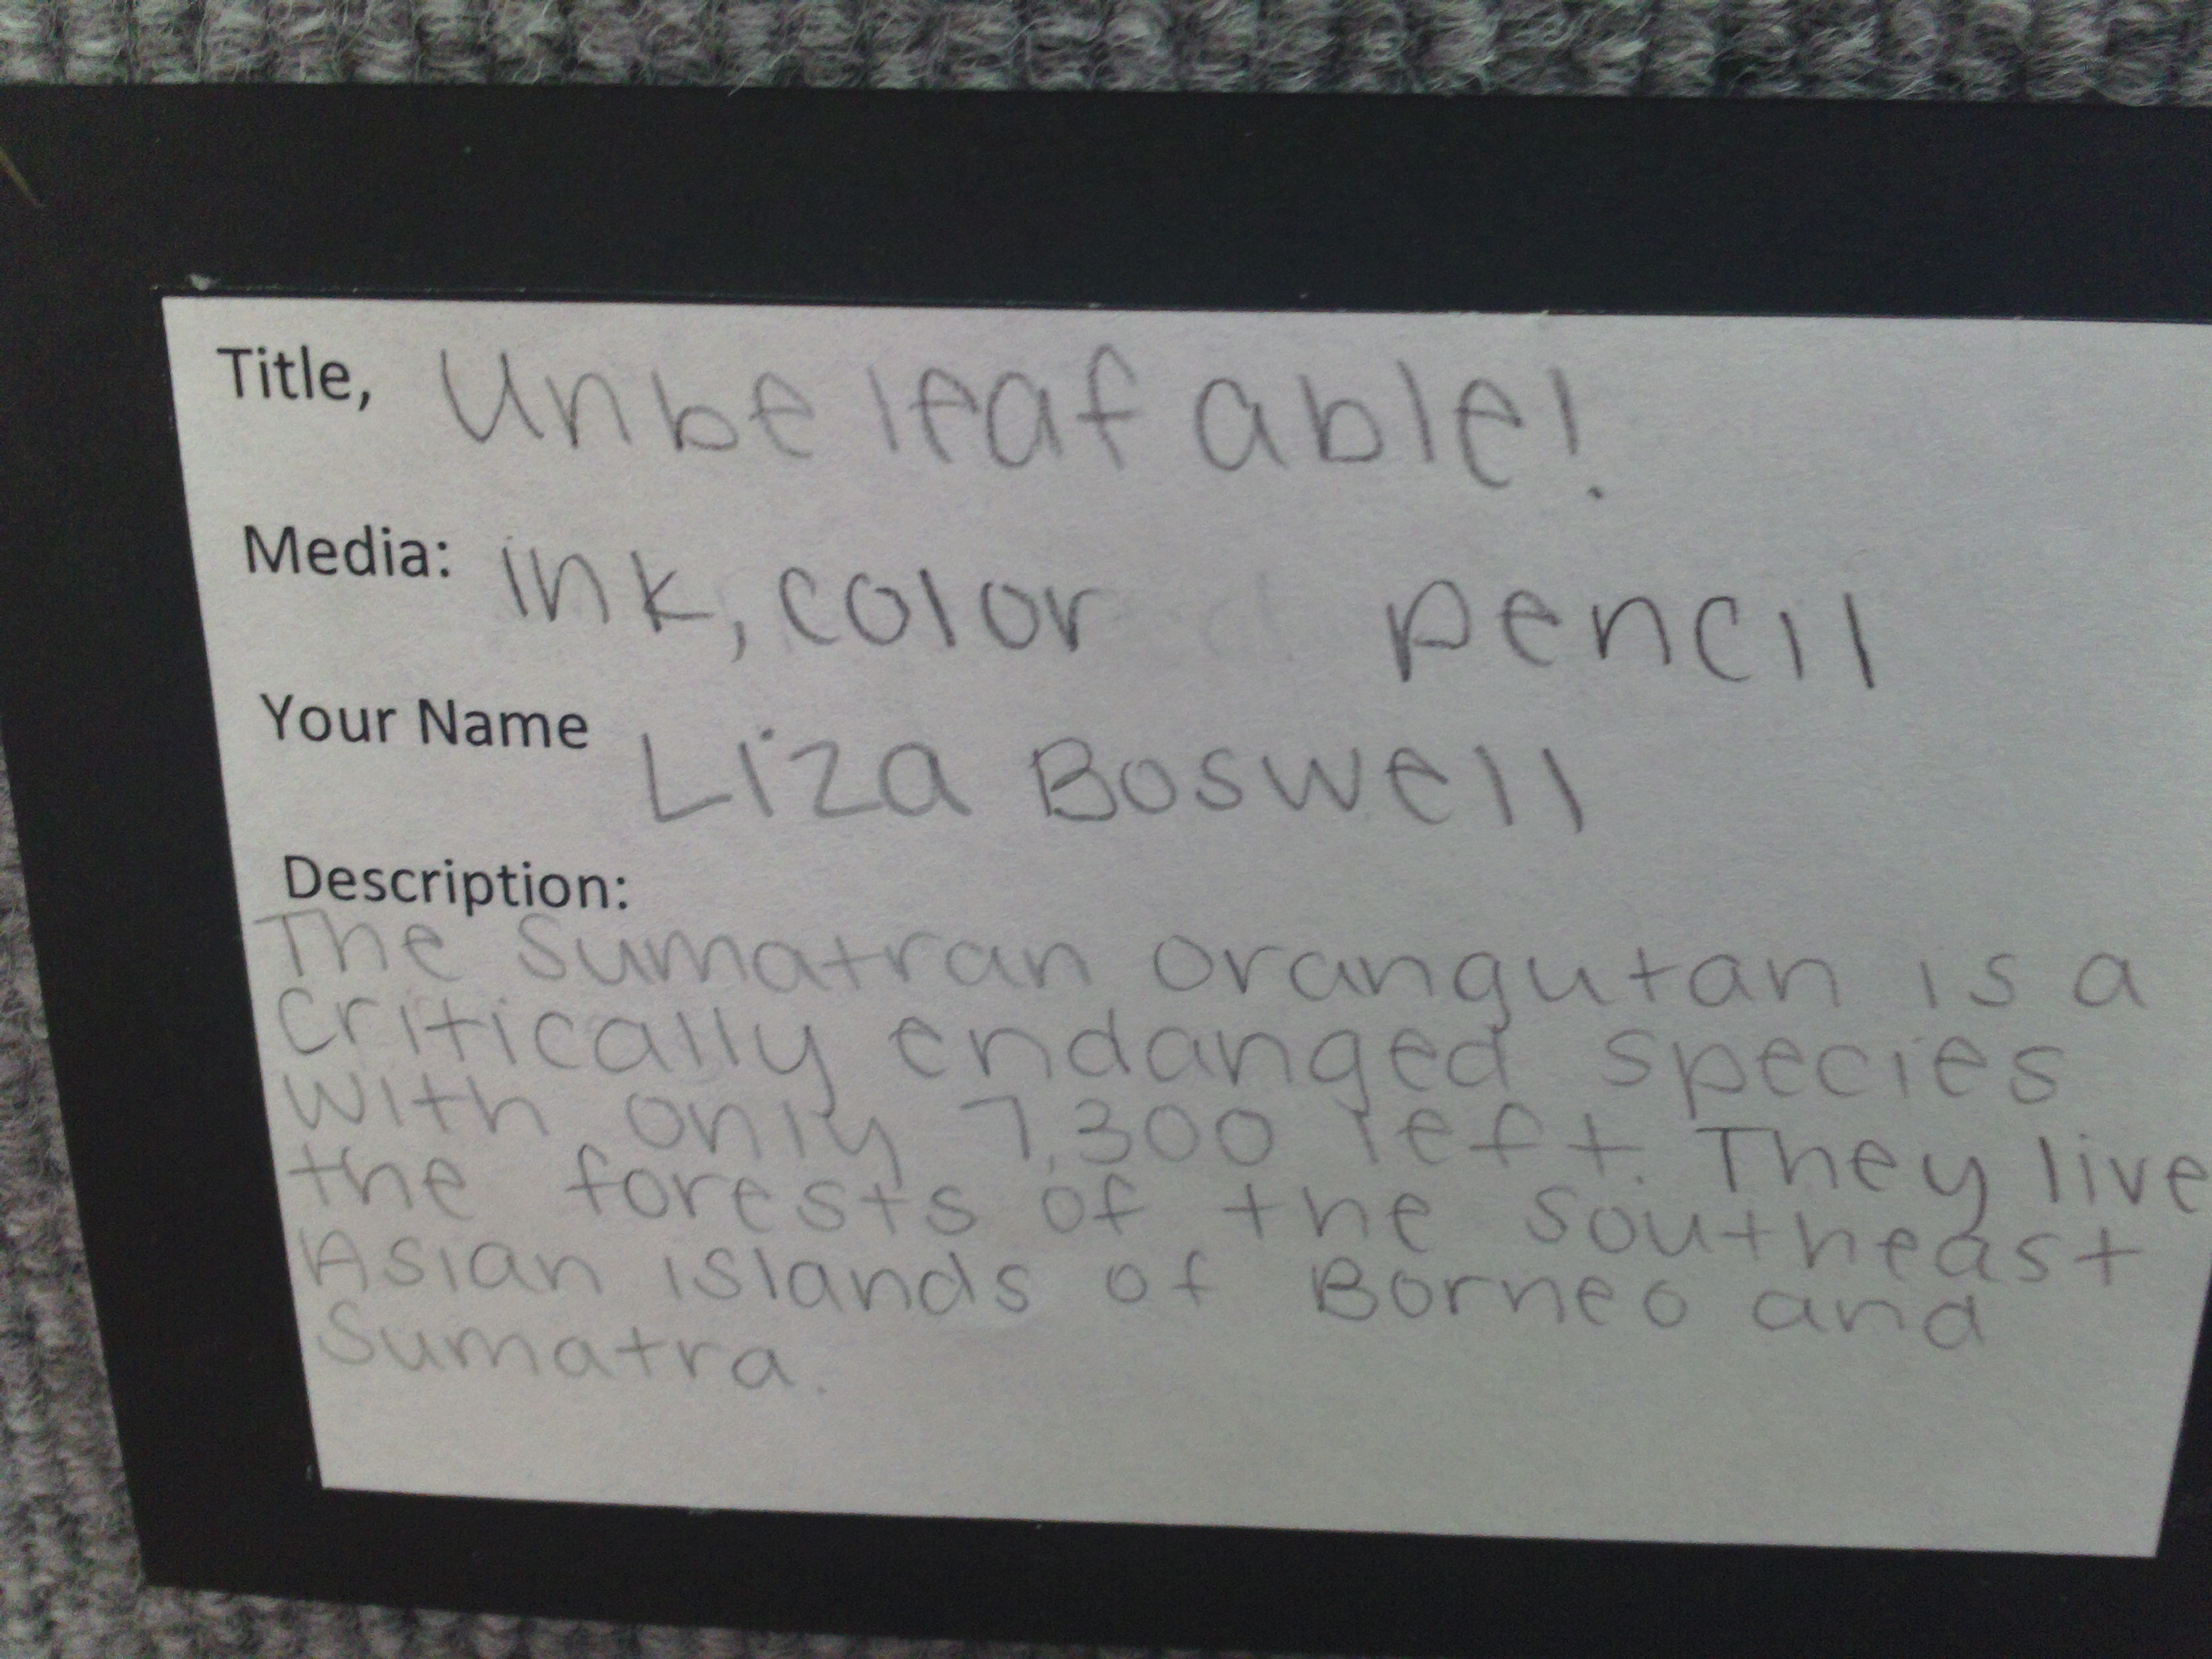 Title, Unbeleafable!
Media: ink, color pencil
Your Name Liza Boswell
Description:
The Sumatran orangutan is a
critically endanged species
with only 7,300 left. They live
the forests of the southeast
Asian islands of Borneo and
Sumatra.